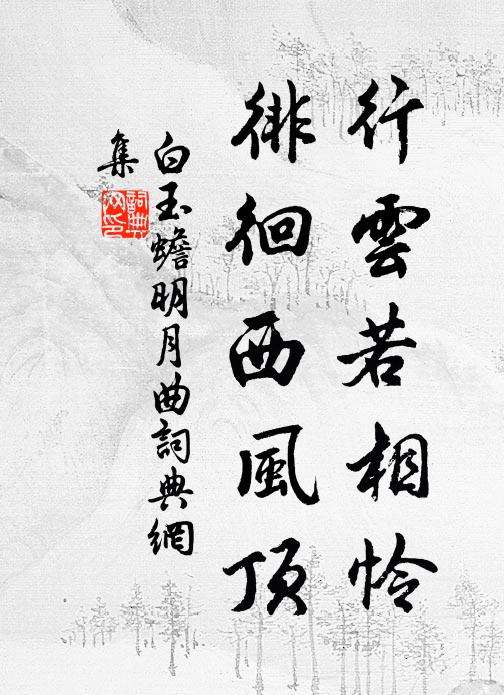 行雲若相怜
徘徊西風頂
白玉蟾明月曲詞典網
集
詞典
网印